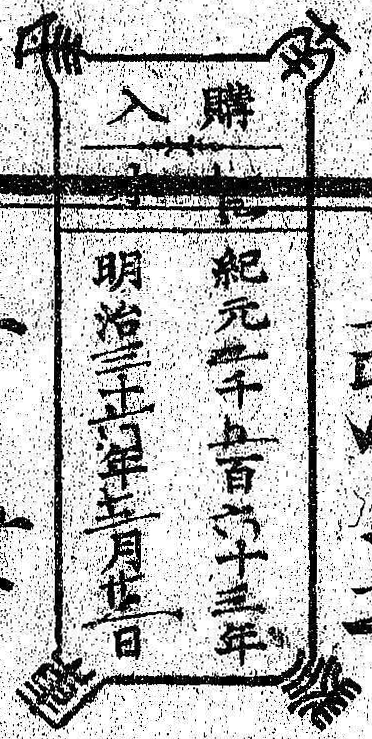 購入
紀元二千五百六十三年
明治三十六年五月廿三日